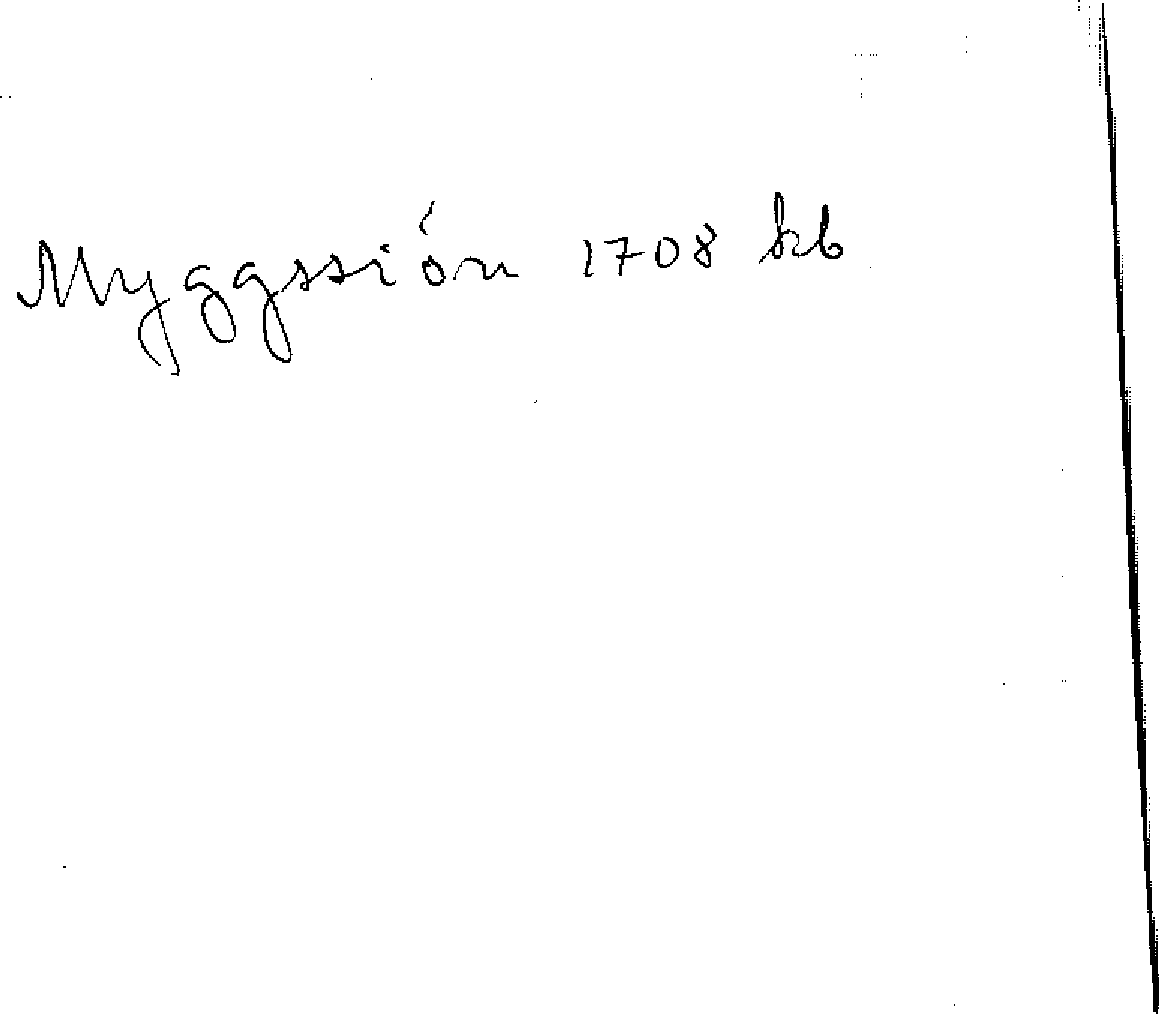 Myggssión 1708 kb